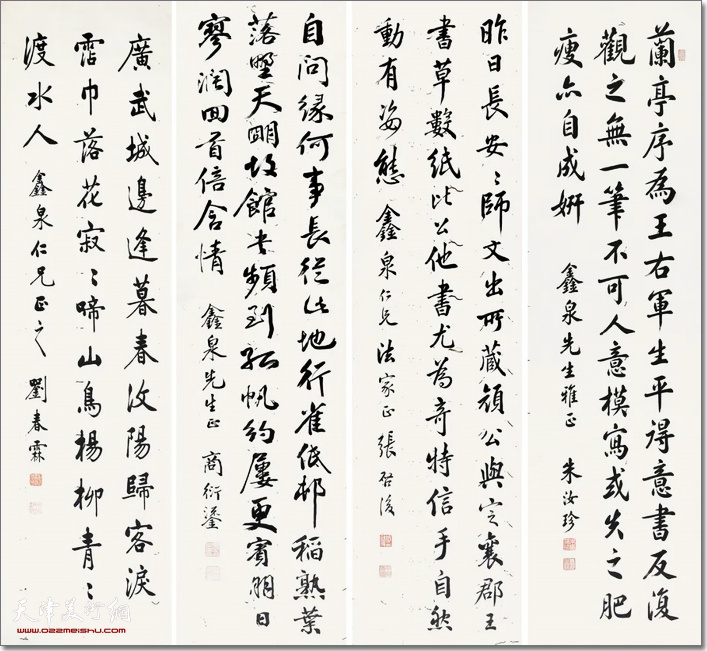 蘭亭序為王右軍生平得意書反復
觀之無一筆不可人意模寫或失之肥
瘦亦自成妍
鑫泉先生雅正 朱汝珍
昨日長安安師文出所藏顏公與定襄郡王
書草數紙比公他書尤為奇特信手自然
動有姿態
鑫泉仁兄法家正 張啓後
自問緣何事長從此地行雀低邨稻熟葉
落墅天明故館書頻到孤帆約屢更賓朋日
寥闊回首倍含情
鑫泉先生正 商衍瀛
廣武城邊逢暮春汶陽歸客淚
霑巾落花寂〻啼山鳥楊柳青〻
渡水人
鑫泉仁兄正之 劉春霖
天津美术网
www.022meishu.com